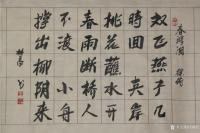 春游湖 徐俯
双飞燕子几
時回夹岸
桃花蘸水开
春雨断桥人
不渡小舟
撑出柳阴来